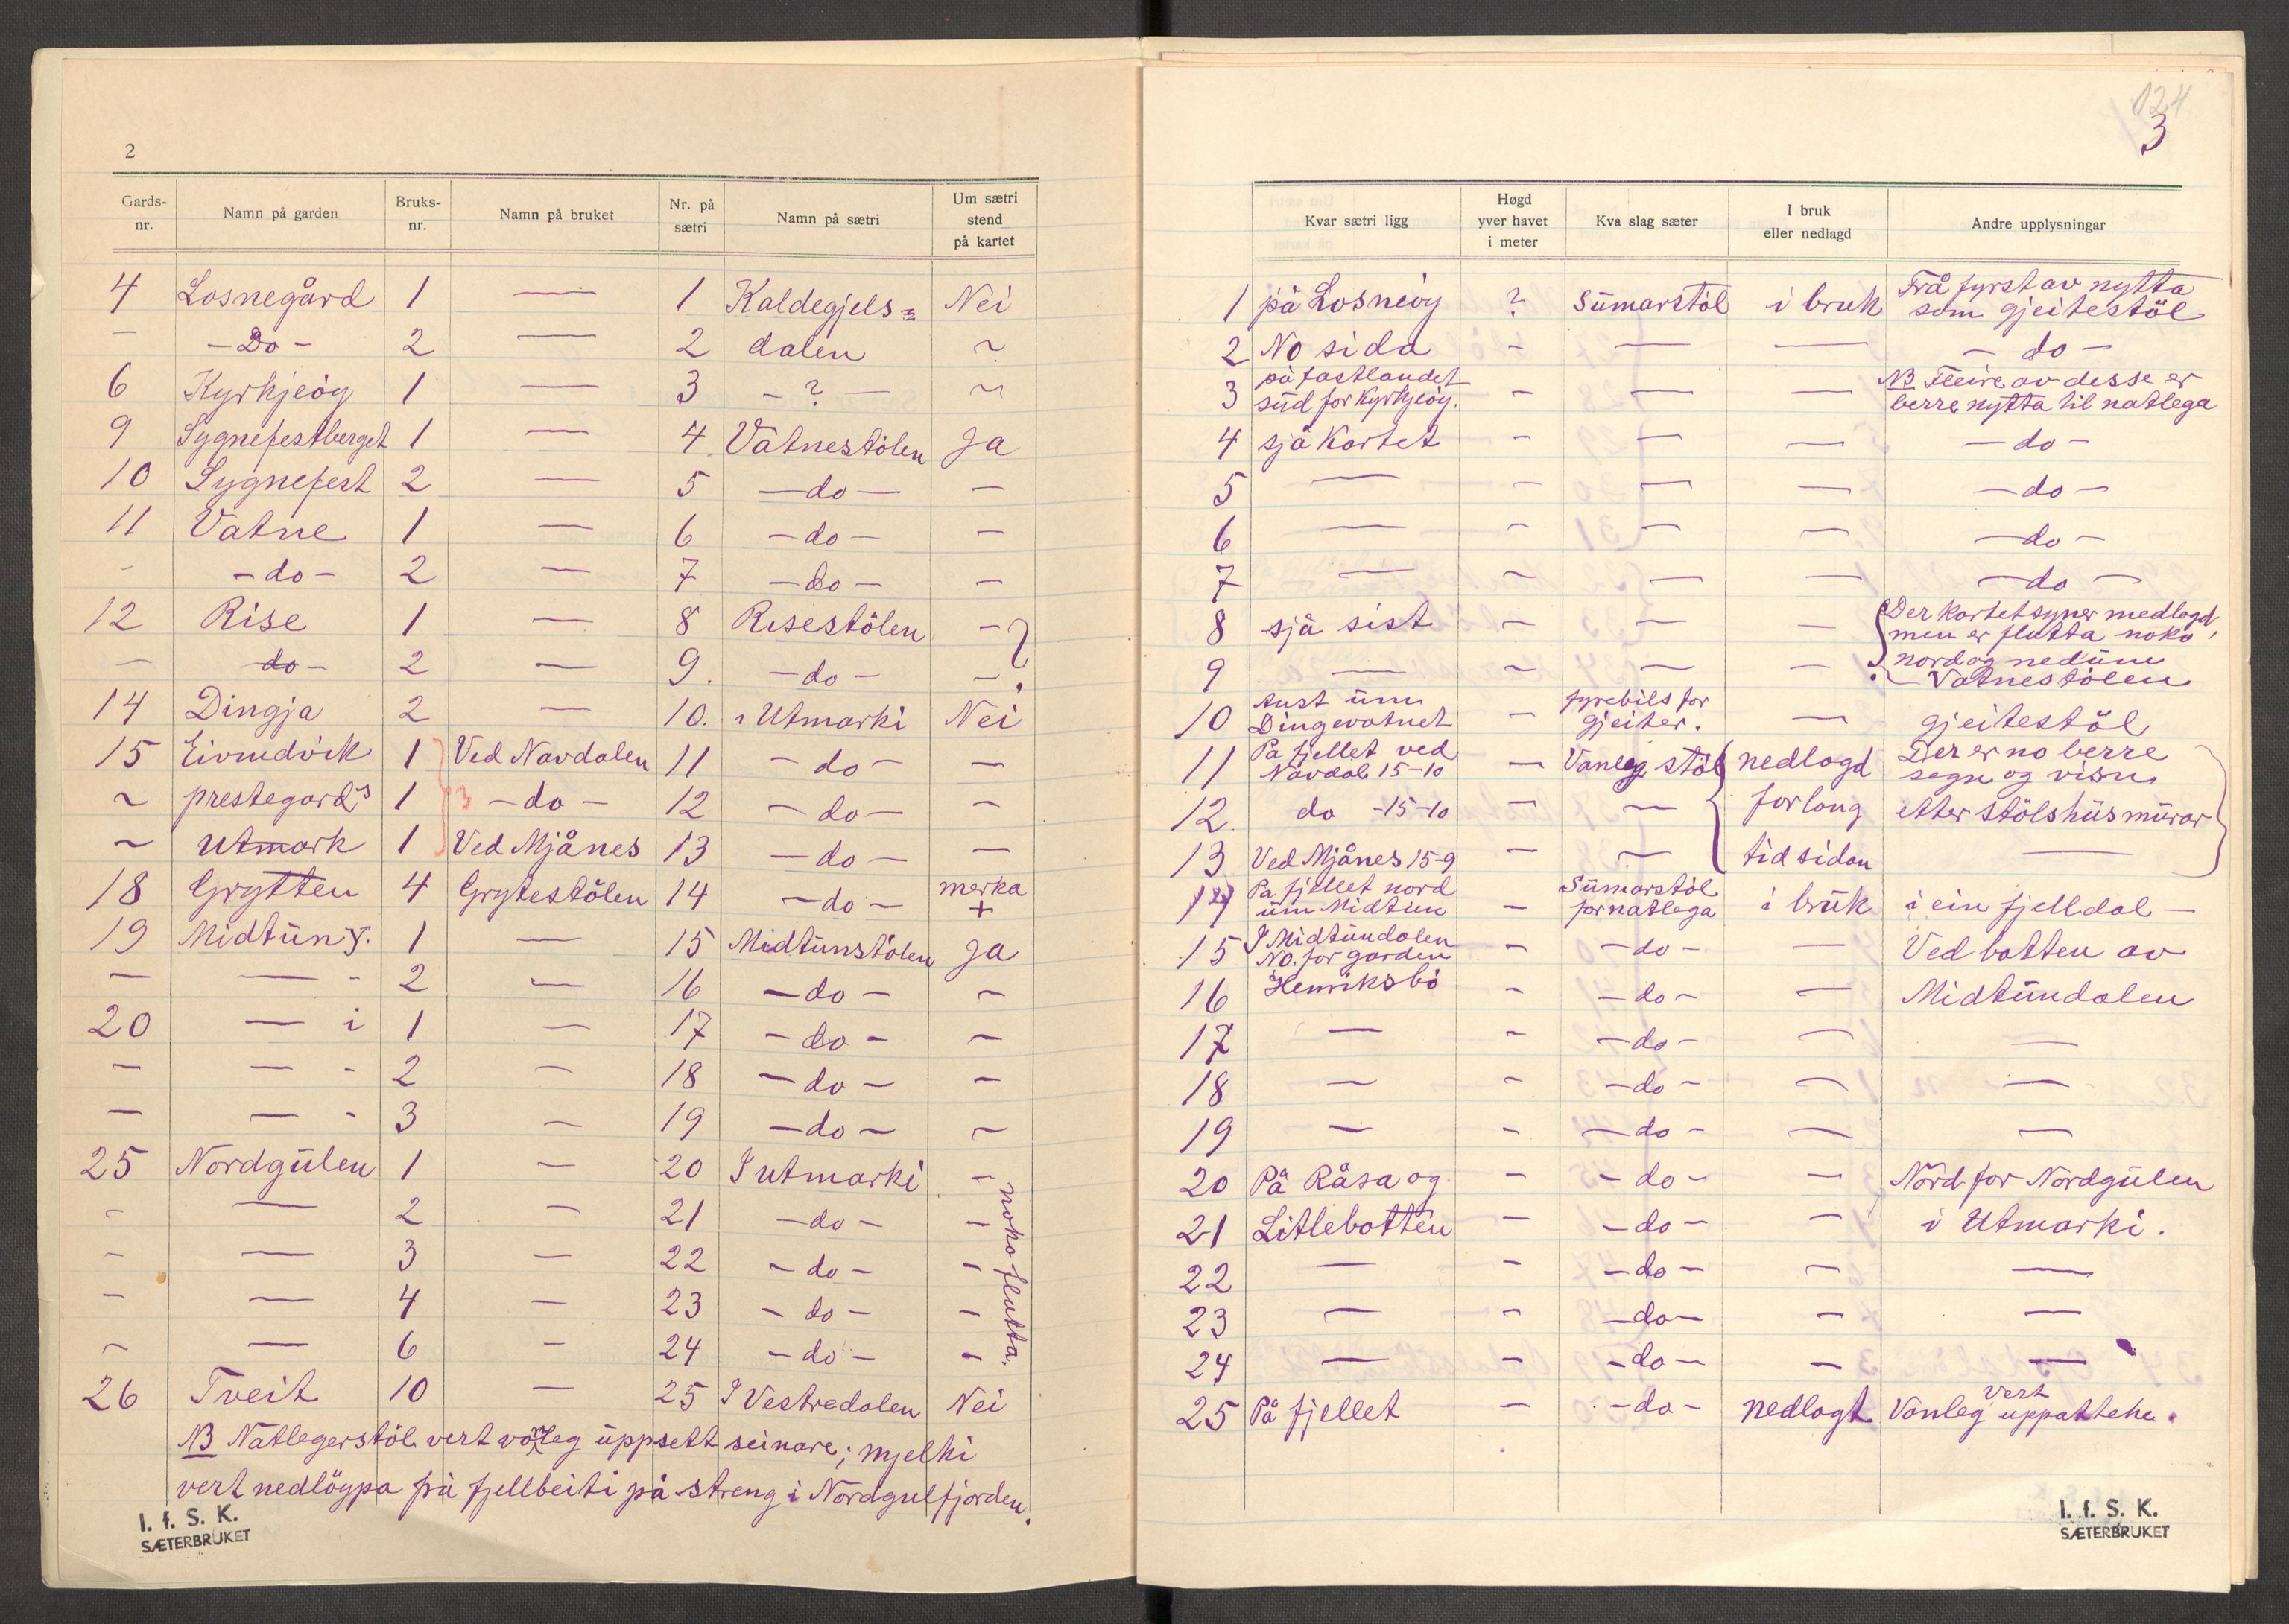 2
Gards-nr. Namn på garden Bruks-nr. Namn på bruket Nr. på sætri Namn på sætri Um sætri stend på kartet
4 Losnegård 1 — 1 Kaldegjels= Nei
— -Do- 2 — 2 dalen ~
6 Kyrkjeöy 1 — 3 - ? - ~
9 Sygnefestberget 1 — 4 Vatnestölen Ja
10 Sygnefest 2 — 5 -do- —
11 Vatne 1 — 6 -do- —
- -do- 2 — 7 -do- —
12 Rise 1 — 8 Risestölen -
— -do- 2 — 9. -do- -
14 Dingja 2 — 10. i Utmarki Nei
15 Eivindvik 1 Ved Navdalen 11 -do- —
~ prestegards 1 3 -do- 12 -do- —
~ Utmark 1 Ved Mjånes 13 -do- —
18 Grytten 4 Grytestölen 14 -do- merka +
19 Midtun y. 1 — 15 Midtunstölen Ja
— — - 2 — 16 -do- ~
20 — i 1 — 17 -do- ~
— — - 2 — 18 -do- ~
— — - 3 — 19 -do- ~
25 Nordgulen 1 — 20 I utmarki -
- — 2 — 21 -do- -
- — 3 — 22 -do- -
- — 4 — 23 -do- -
~ — 6 - 24 -do- -
noko flutta.
26 Tveit 10 — 25 I Vestredalen Nei
NB Natlegerstöl vert vanleg uppsett seinare; mjelki
vert nedlöypa frå fjellbeiti på streng i Nordgulfjorden.
I. f. S. K.
SÆTERBRUKET
124
3
Kvar sætri ligg Høgd yver havet i meter Kva slag sæter I bruk eller nedlagd Andre upplysningar
1 på Losneöy ? Sumarstöl i bruk Frå fyrst av nytta som gjeitestöl
2 No sida - — — - do -
3 på fastlandet sud for Kyrkjeöy. - — — NB Fleire av desse er berre nytta til natlega
4 sjå Kartet - — — -do-
5 — - — — -do-
6 — - — — -do-
7 — ~ — — -do-
8 sjå sist — — — Der kartet syner nedlagd, men er flutta noko
9 — ~ — — nord og nedunn Vatnestölen
10 Aust um Dingevatnet — fyrebils for gjeiter. — gjeitestöl
11 På fjellet ved Navdal 15-10 — Vanleg stöl nedlagd Der er no berre segn og visn
12. do -15-10 — — for lang etter stölshusmurar
13 Ved Mjånes 15-9 — — tid sidan —
14 På fjellet nord um Midtun — Sumarstöl for natlega i bruk i ein fjelldal —
15 I Midtundalen No. for garden - -do- — Ved botten av
16 Henriksbö - -do- — Midtundalen
17 — - -do- — —
18 — - -do- — —
19 — - -do- — —
20 På Råsa og - -do- — Nord for Nordgulen
21 Litlebotten - -do- — i Utmarki.
22 — - -do- — —
23 — - -do- — —
24 — - -do- — —
25 På fjellet - -do- nedlagt Vanleg vert uppattehe.
I. f. S. K.
SÆTERBRUKET